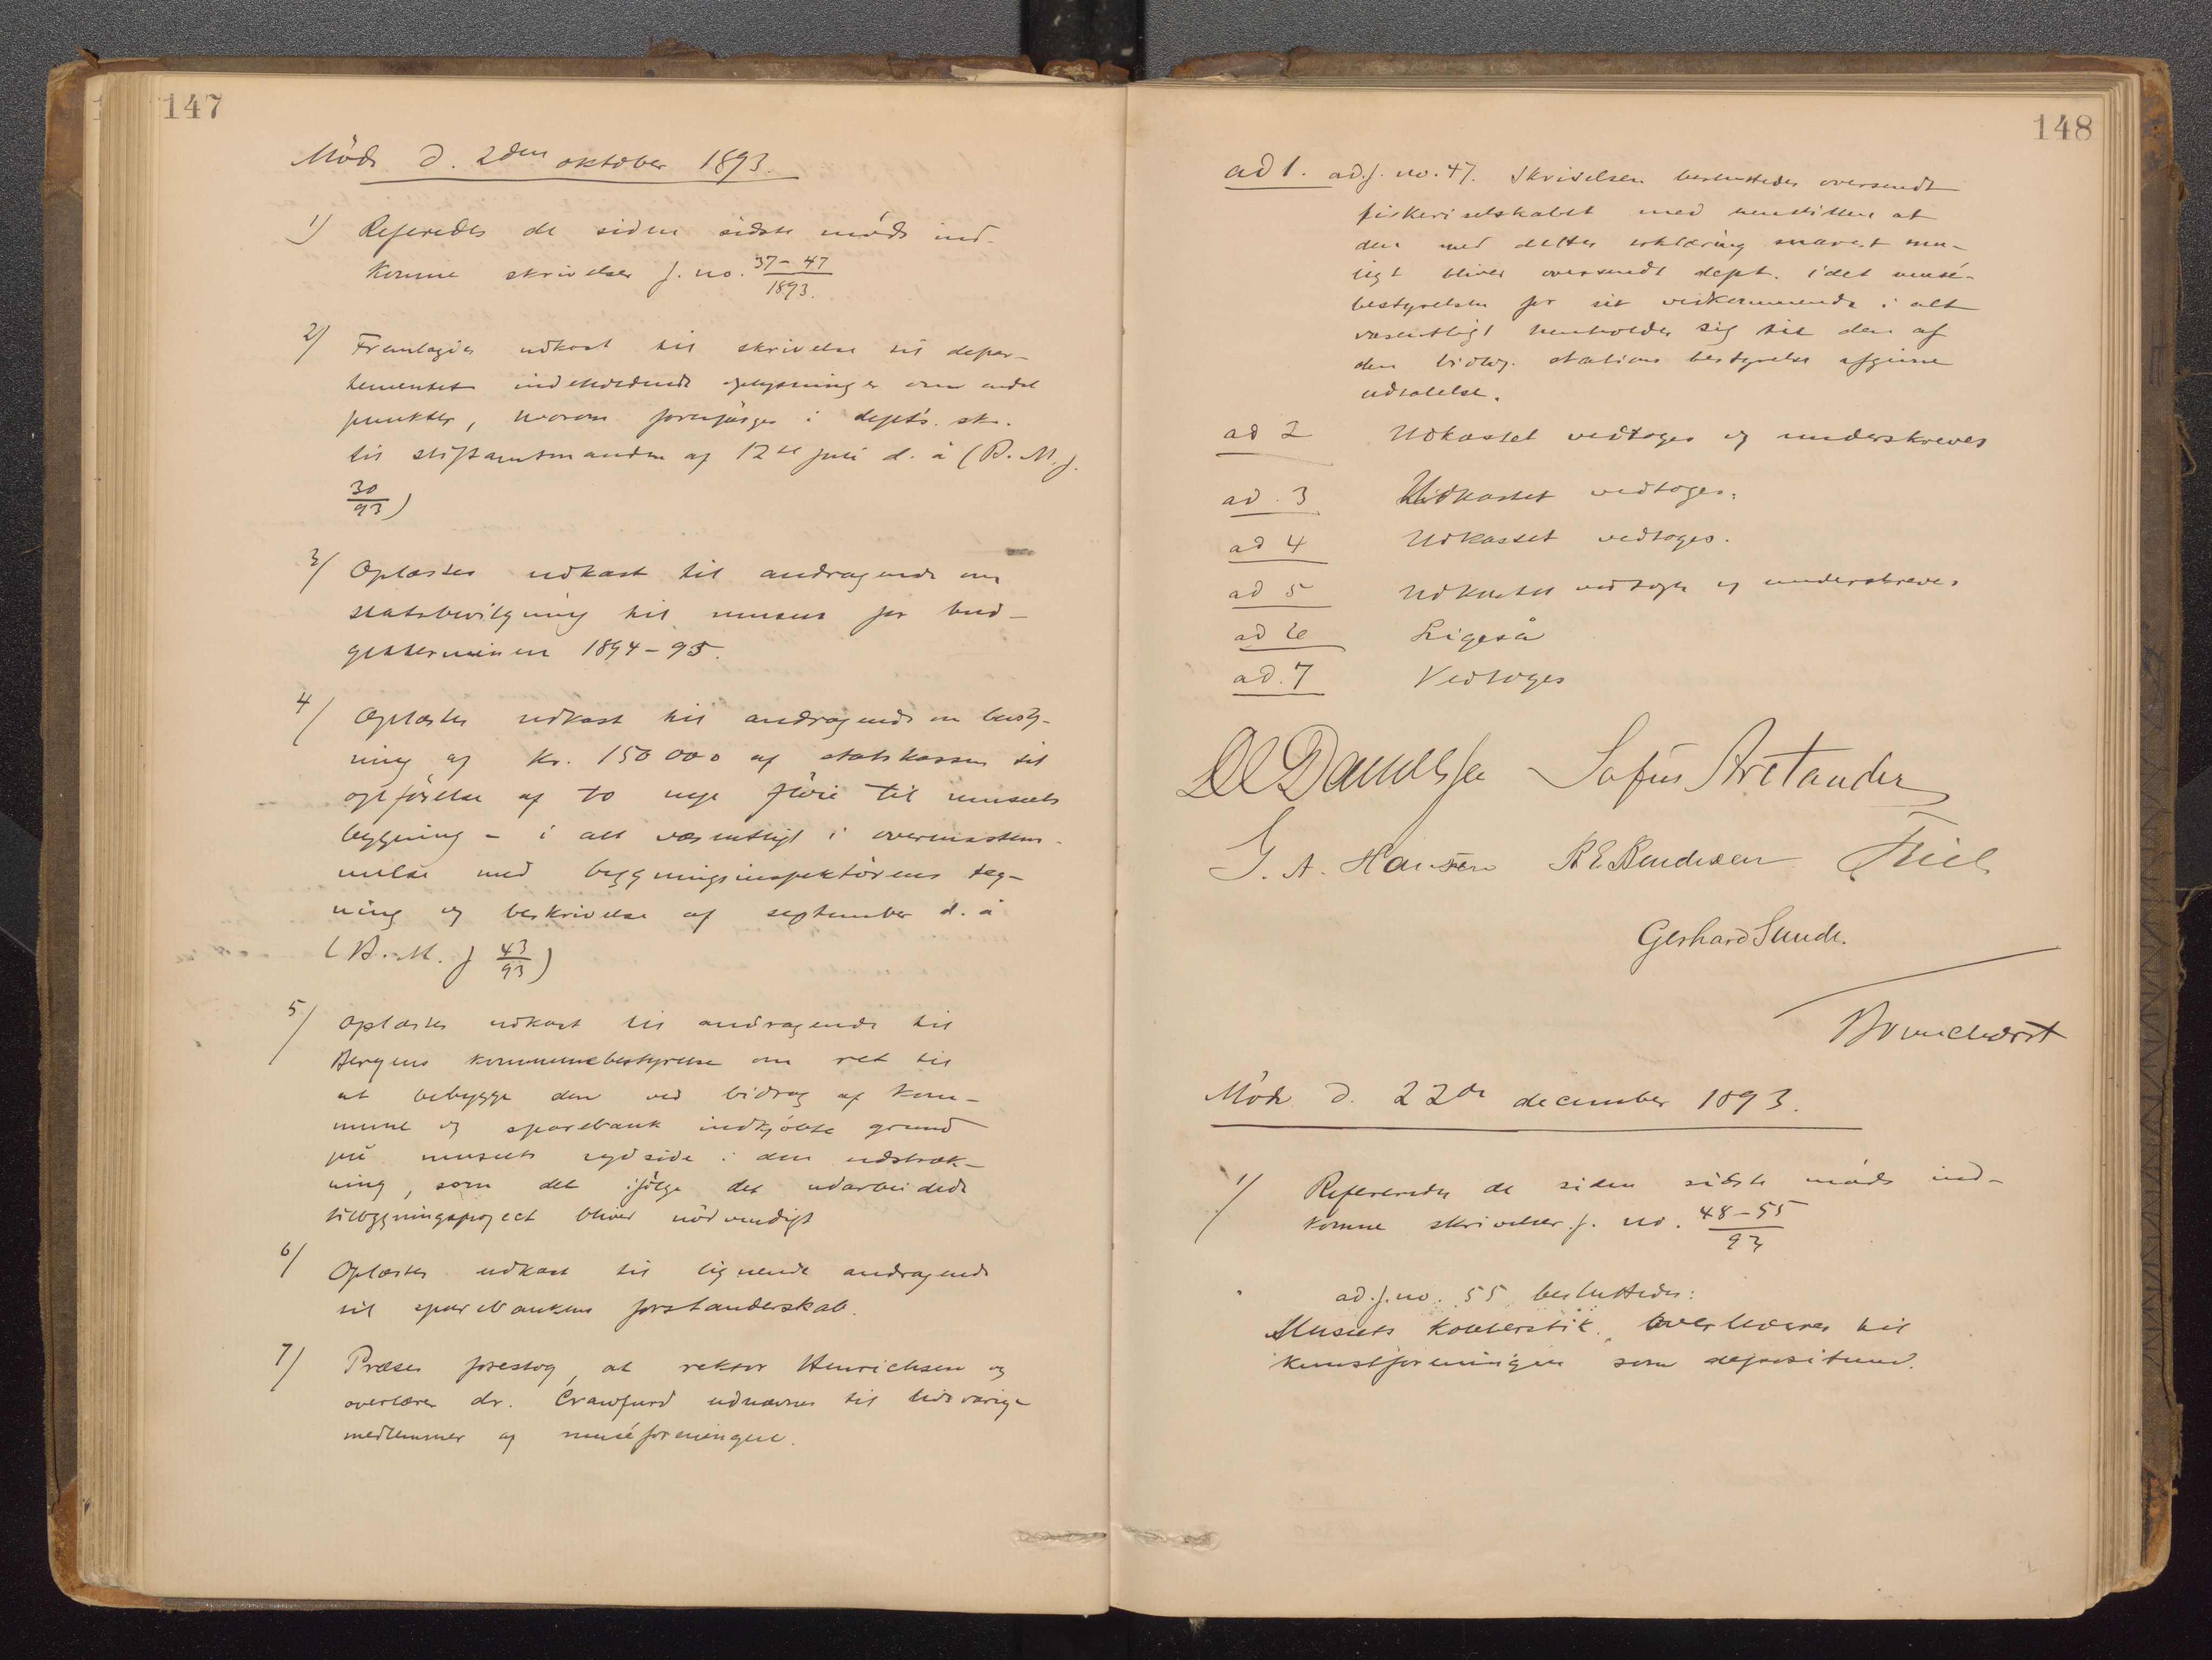 147
Möde d. 2den oktober 1893.
1) Referedes de siden sidste möde ind-
komne skrivelser j. no. 37-47/1893.
2) Fremlagdes udkast til skrivelse til depar-
tementet indeholdende oplysninger om endel
punkter, hvorom forespörges i dept's. skr.
til stiftamtmanden af 12te juli d. å (B. M. j.
30/93)
3) Oplæstes udkast til andragende om
statsbevilgning til museet for bud-
getterminen 1894-95.
4) Oplæstes udkast til andragende om bevilg-
ning af kr. 150 000 af statskassen til
opförelse af to nye flöie til museets
bygning - i alt væsentligt i overensstem-
melse med bygningsinspektörens teg-
ning og beskrivelse af september d. å
(B. M. j 43/93)
5) Oplæstes udkast til andragende til
Bergens kommunebestyrelse om ret til
at bebygge den ved bidrag af kom-
mune og sparebank indkjöbte grund
på museets sydside i den udstræk-
ning, som det ifölge det udarbeidede
tilbygningsproject bliver nödvendigt
6) Oplæstes udkast til lignende andragende
til sparebankens forstanderskab.
7) Præses foreslog, at rektor Henrichsen og
overlærer dr. Crawfurd udnævnes til livsvarige
medlemmer af muséforeningen.
148
ad 1. ad. j. no. 47. Skrivelsen besluttedes oversendt
fiskeriselskabet med henstillen at
den med dettes erklæring snarest mu-
ligt bliver oversendt dept. idet musé-
bestyrelsen for sit vedkommende i alt
væsentligt henholder sig til den af
den biolog. stations bestyrelse afgivne
udtalelse.
ad 2 Udkastet vedtoges og underskreves
ad. 3 Udkastet vedtoges.
ad 4 Udkastet vedtoges.
ad 5 Udkastet vedtoges og underskreves
ad 6 Ligeså
ad. 7 Vedtoges
DC Danielssen Sofus Arctander
G. A. Hansen B E Bendixen Friele
Gerhard Sunde.
Brunchorst
Möde d. 22de december 1893.
1) Refereredes de siden sidste möde ind-
komne skrivelser j. no. 48-55/93
ad. j. no. 55 besluttedes:
Museets kobberstik overleveres til
kunstforeningen som depositum.